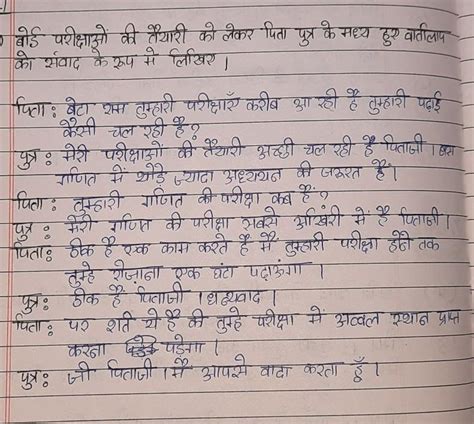 बोर्ड परीक्षाओं की तैयारी को लेकर पिता पुत्र के मध्य हुए वार्तालाप
को संवाद के रूप में लिखिए ।
पिता : बेटा राम तुम्हारी परीक्षाएँ करीब आ रही है तुम्हारी पढ़ाई
कैसी चल रही है ?
पुत्र : मेरी परीक्षाओं की तैयारी अच्छी चल रही है पिताजी । बस
गणित में थोड़े ज्यादा अध्ययन की जरूरत है ।
पिता : तुम्हारी गणित की परीक्षा कब है ?
पुत्र : मेरी गणित की परीक्षा सबसे आखिरी में है पिताजी ।
पिता : ठीक है एक काम करते है मैं तुम्हारी परीक्षा होने तक
तुम्हे रोज़ाना एक घंटा पढ़ाऊंगा ।
पुत्र : ठीक है पिताजी । धन्यवाद ।
पिता : पर शर्त ये है की तुम्हे परीक्षा में अव्वल स्थान प्राप्त
करना पड़ेगा ।
पुत्र : जी पिताजी । मैं आपसे वादा करता हूँ ।